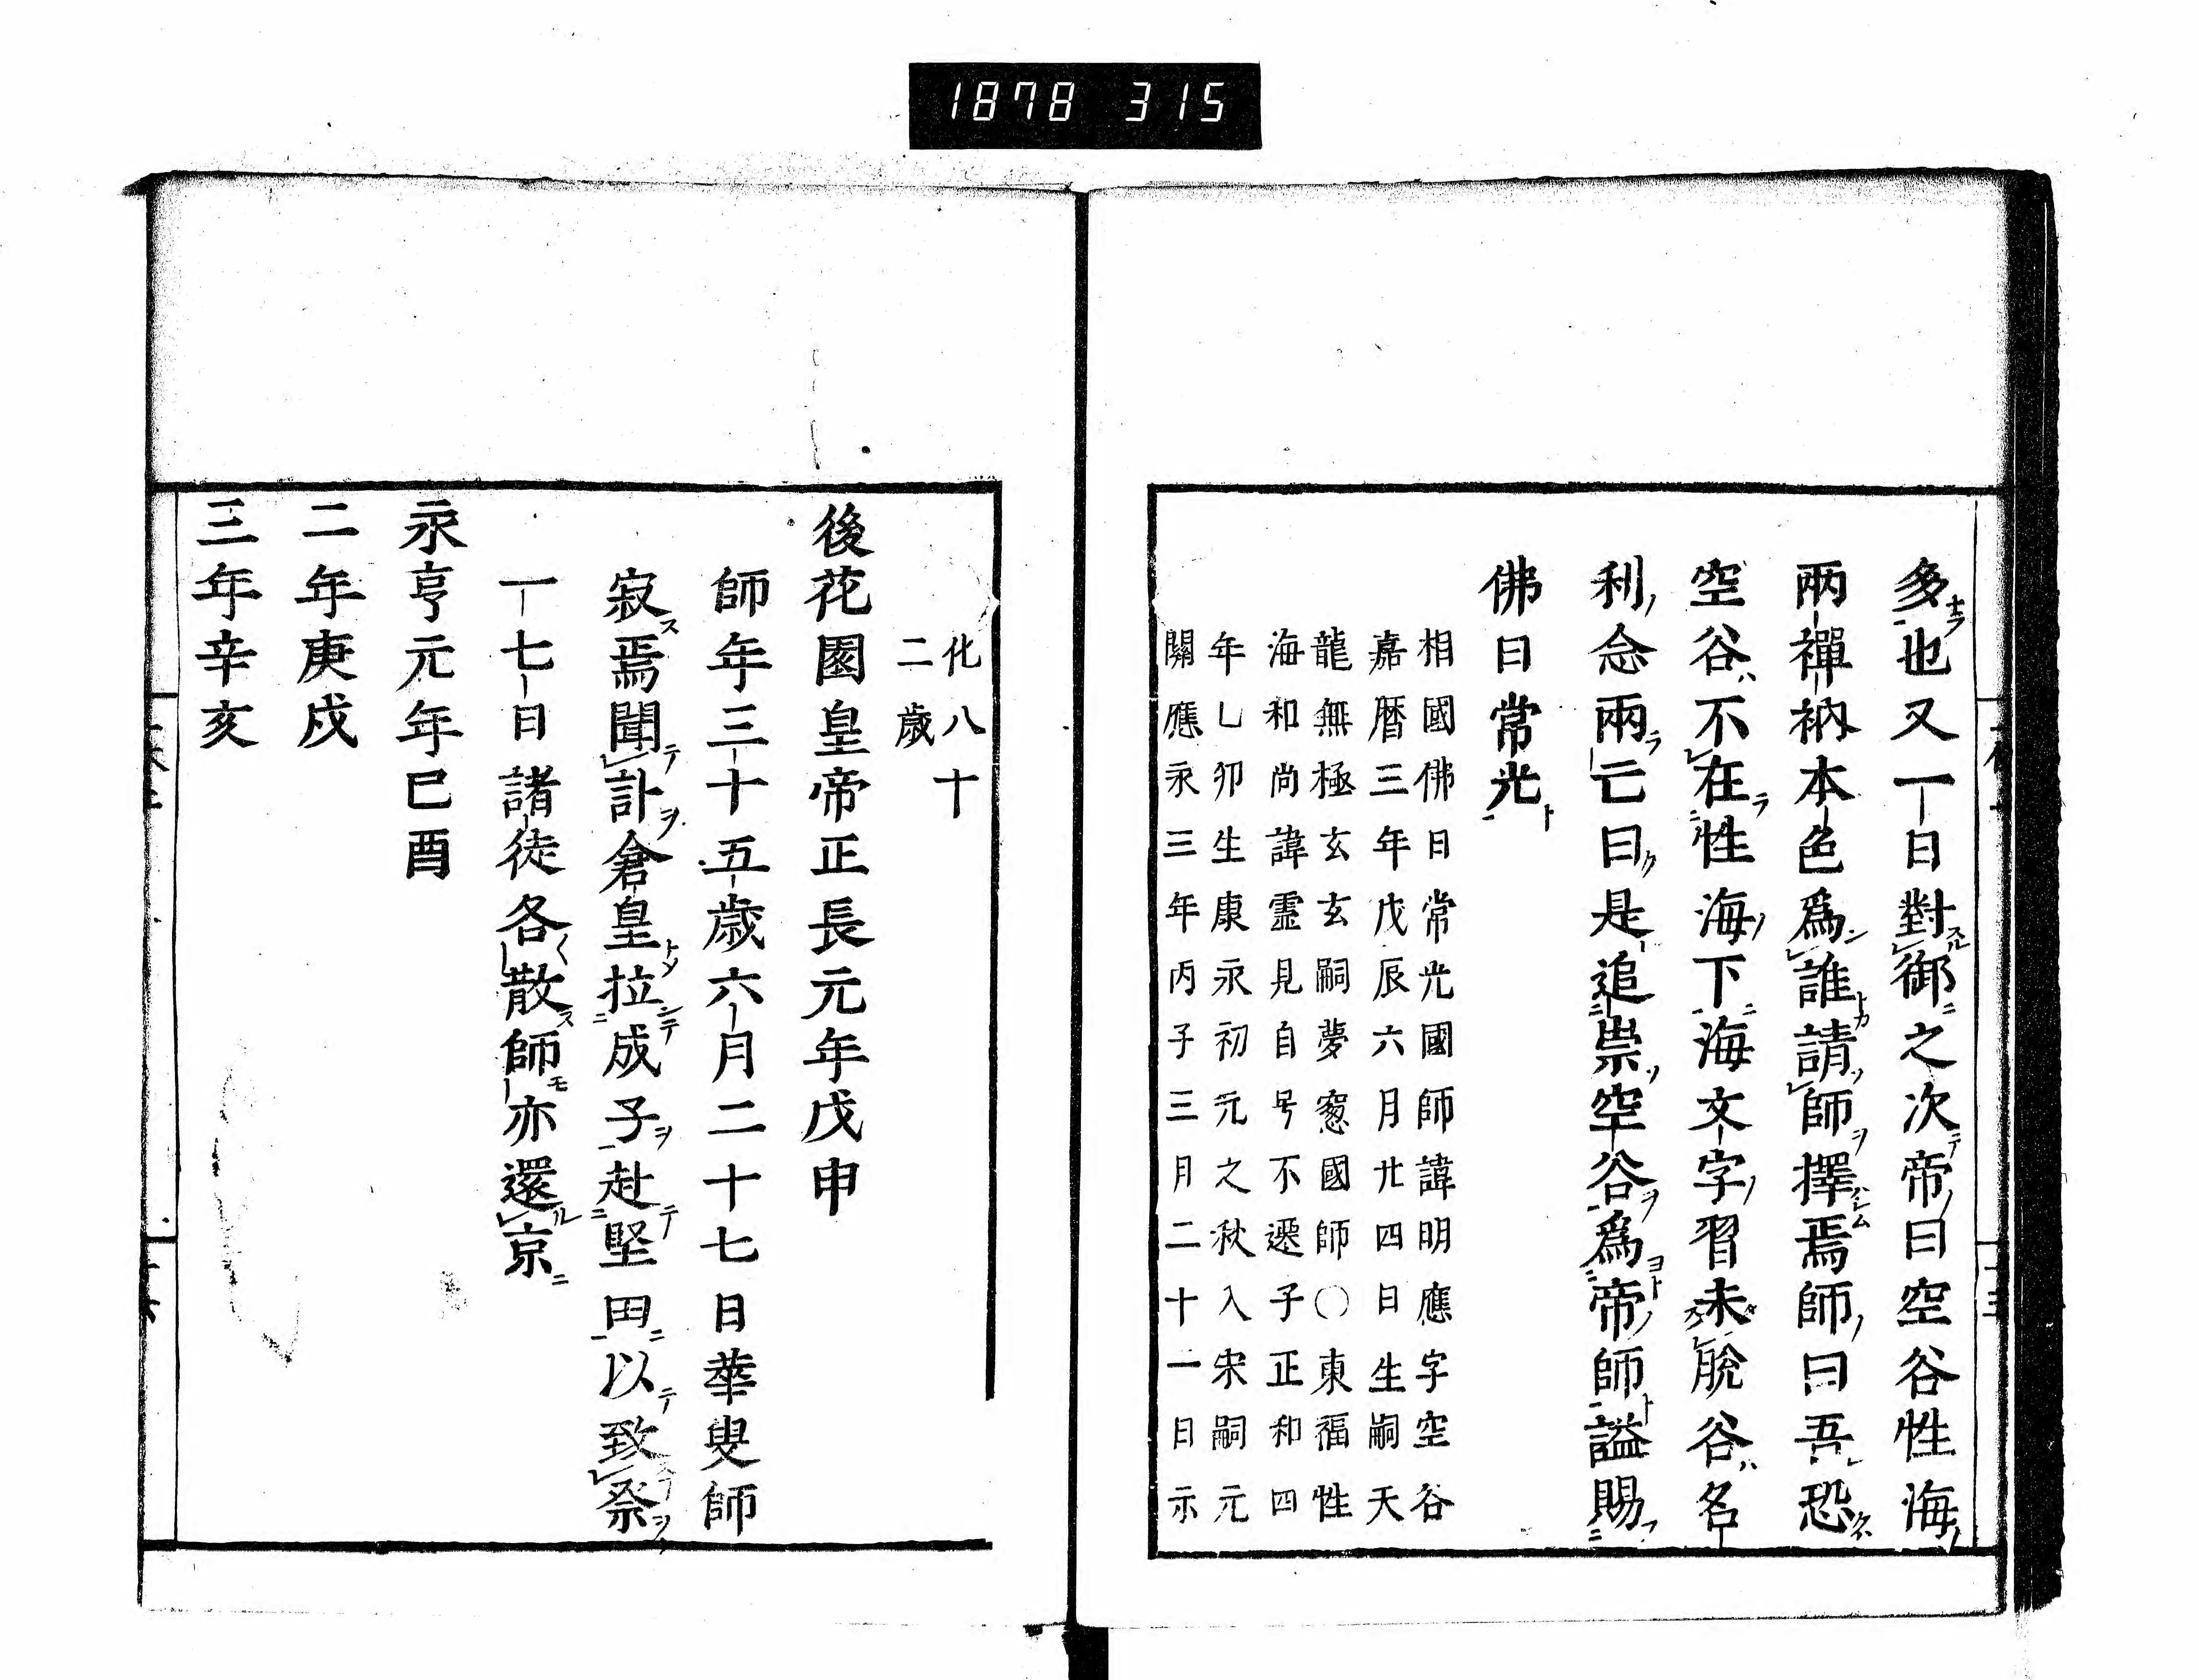 1878 315
多也又一日對御之次帝曰空谷性海
兩禪衲本色爲誰請師擇焉師曰吾恐
空谷不在性海下海文字習未脫谷名
利念兩亡曰是追崇空谷爲帝師謚賜
佛日常光
相國佛日常光國師諱明應字空谷
嘉曆三年戊辰六月廿四日生嗣天
龍無極玄玄嗣夢窓國師〇東福性
海和尚諱霊見自号不遷子正和四
年乚卯生康永初元之秋入宋嗣元
關應永三年丙子三月二十一日示
化八十
二歲
後花園皇帝正長元年戊申
師年三十五歲六月二十七日華叟師
寂焉聞訃倉皇拉成子赴堅田以致祭
一七日諸徒各散師亦還京
永亨元年巳酉
二年庚戌
三年辛亥